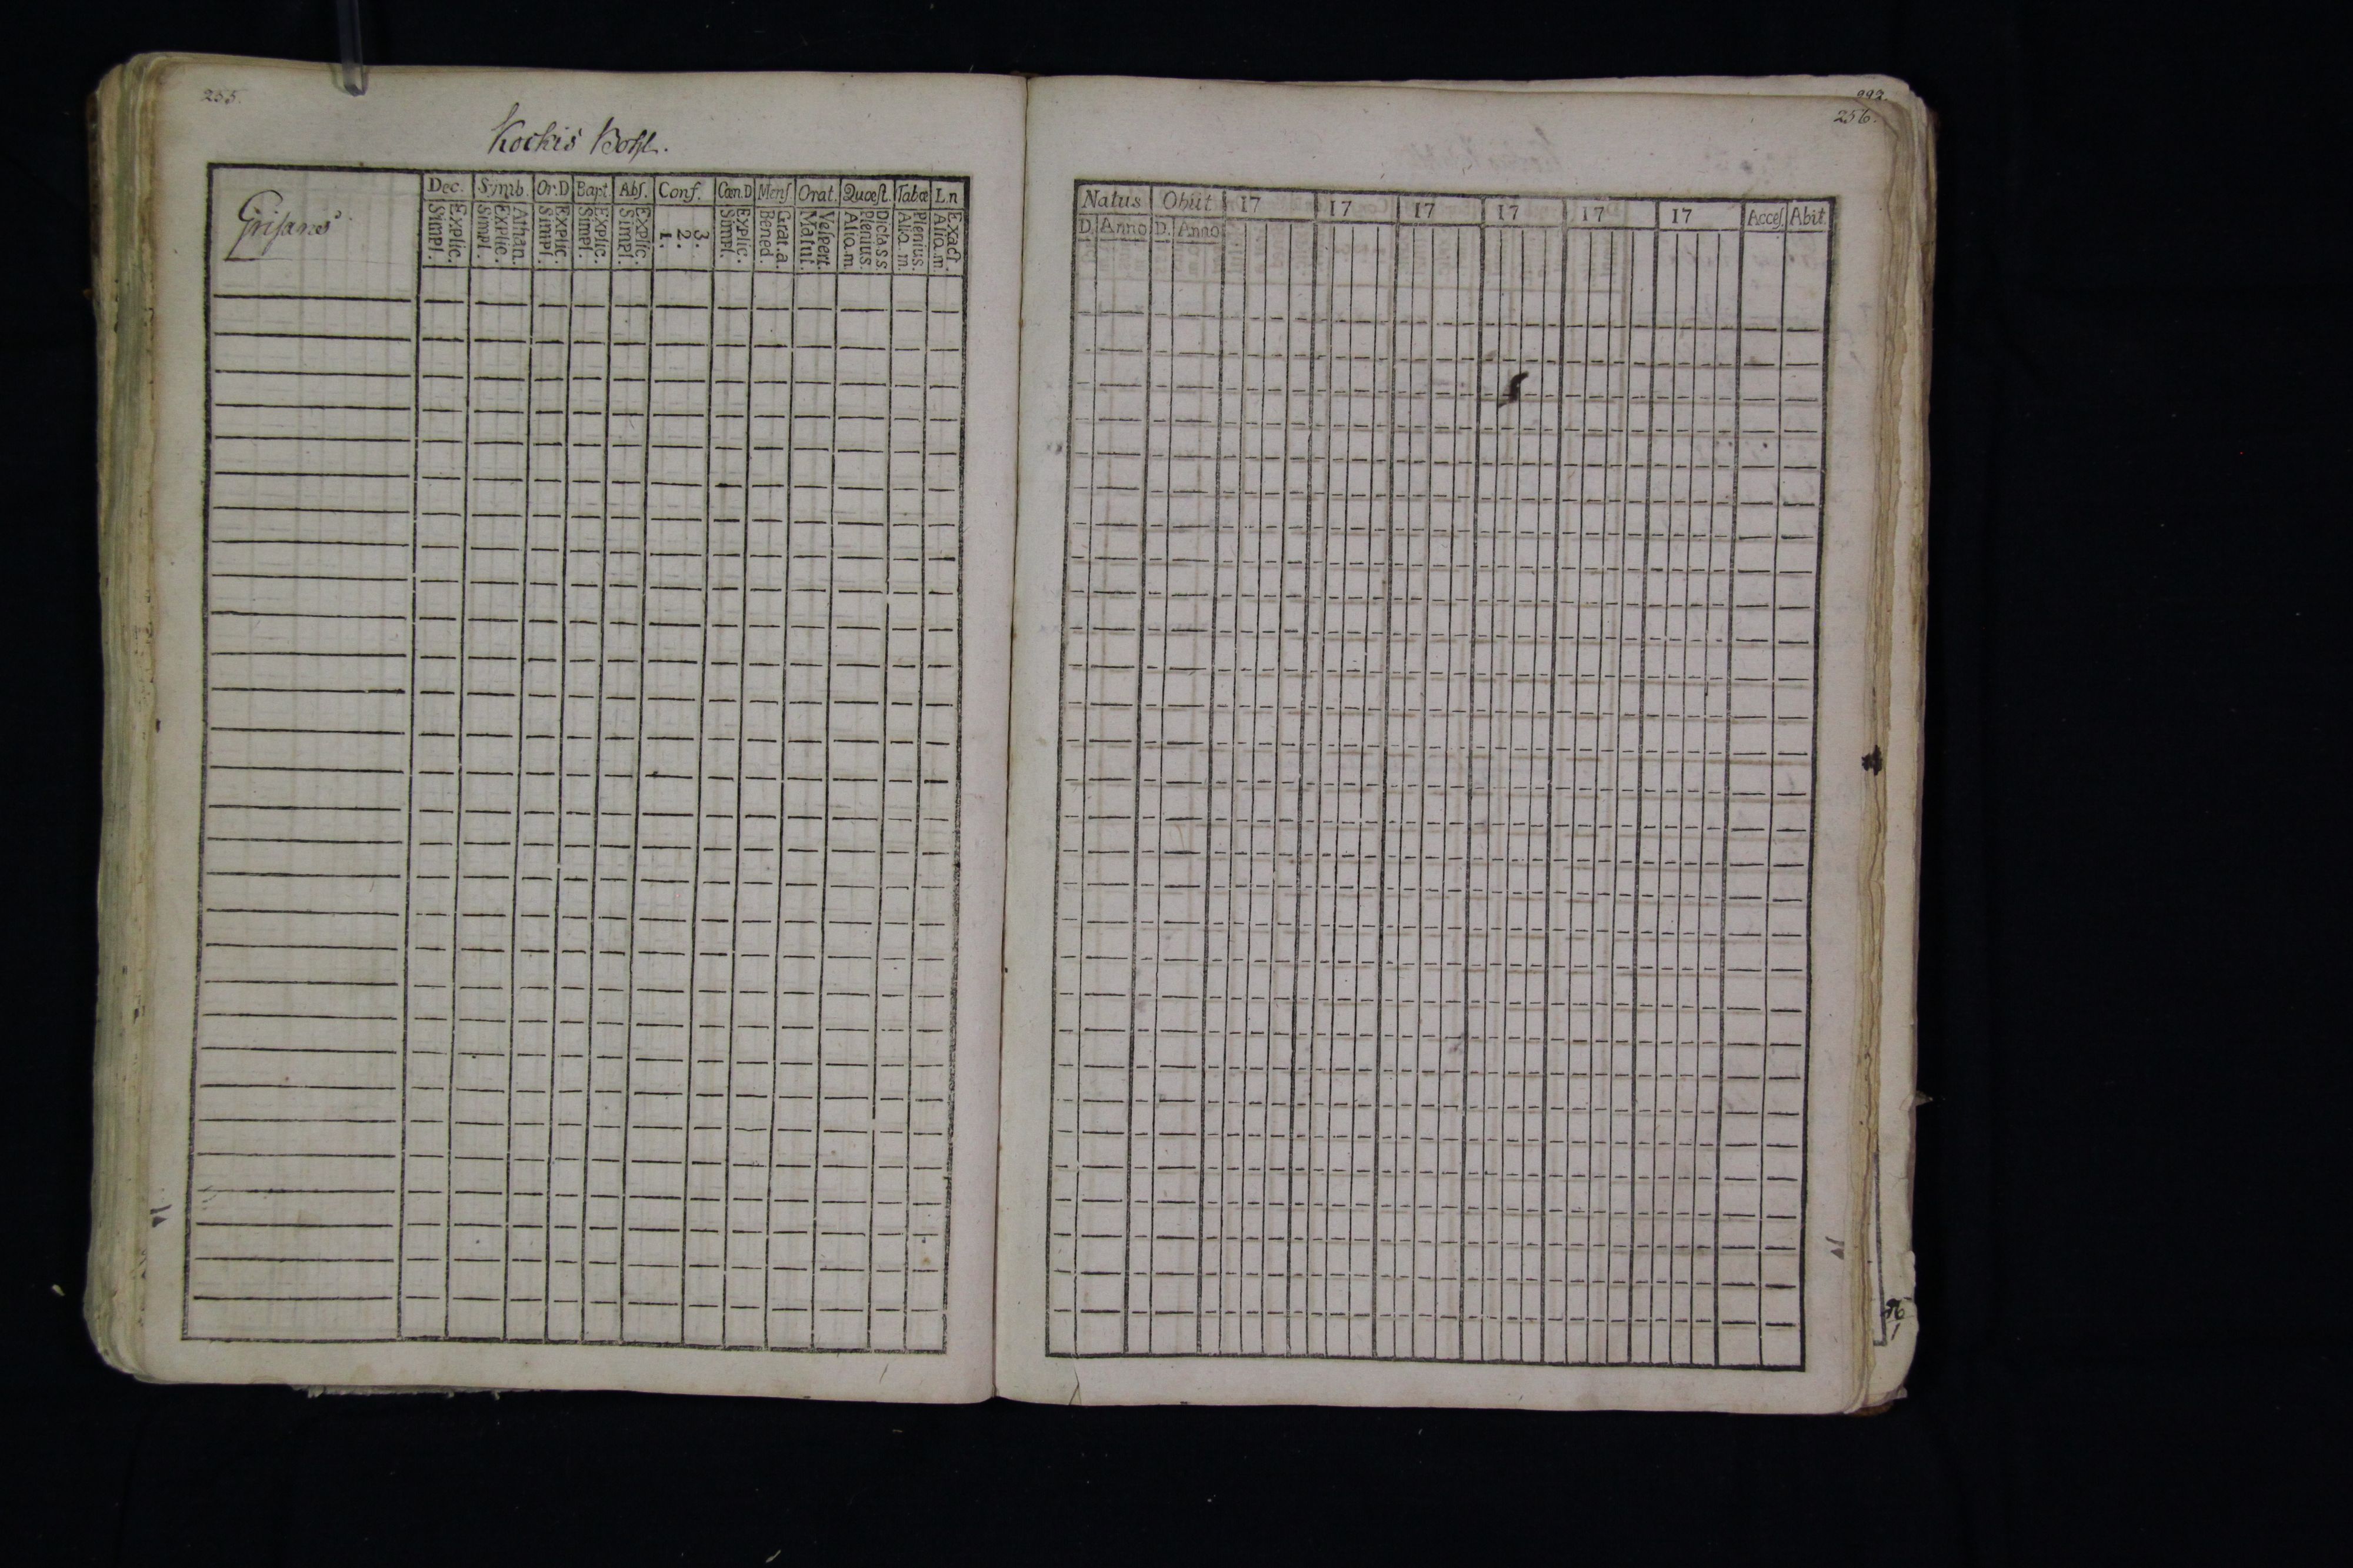 255.
Kockis Bohl.
Grisans
Dec. Simb. Or.D Bapt. Abſ. Conf. Cœn.D Menſ Orat. Quæſt. Tabœ L.n
Simpl. Explic. Simpl. Explic. Athan. Simpl. Explic. Simpl. Explic. Simpl. Explic. 1. 2. 3. Simpl. Explic. Bened. Grat.a. Matut. Veſpert. Aliq.m. Plenius. Dicta ſ.s. Aliq.m. Plenius. Aliq.m. Exact.
992.
256.
Natus Obiit 17 17 17 17 17 17 Acceſ. Abit.
D. Anno D. Anno